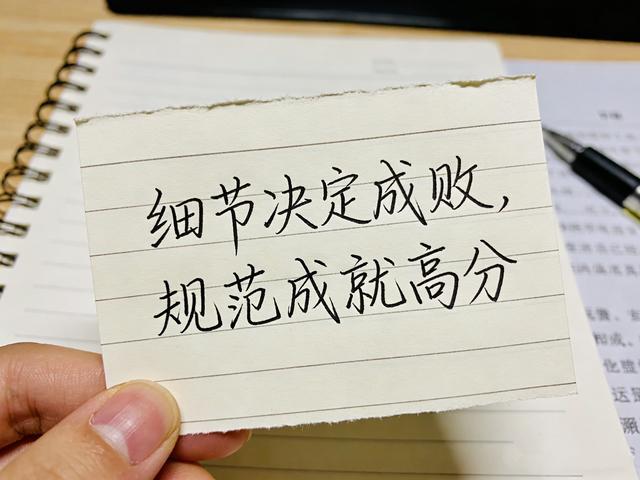 细节决定成败，
规范成就高分